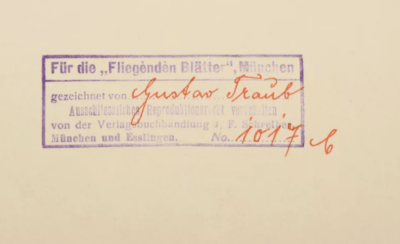 Für die „Fliegenden Blätter", München
gezeichnet von Gustav Traub
Ausschliessliches Reproduktionsrecht vorbehalten
von der Verlagsbuchhandlung J. F. Schreiber
München und Esslingen. No. 1017 b